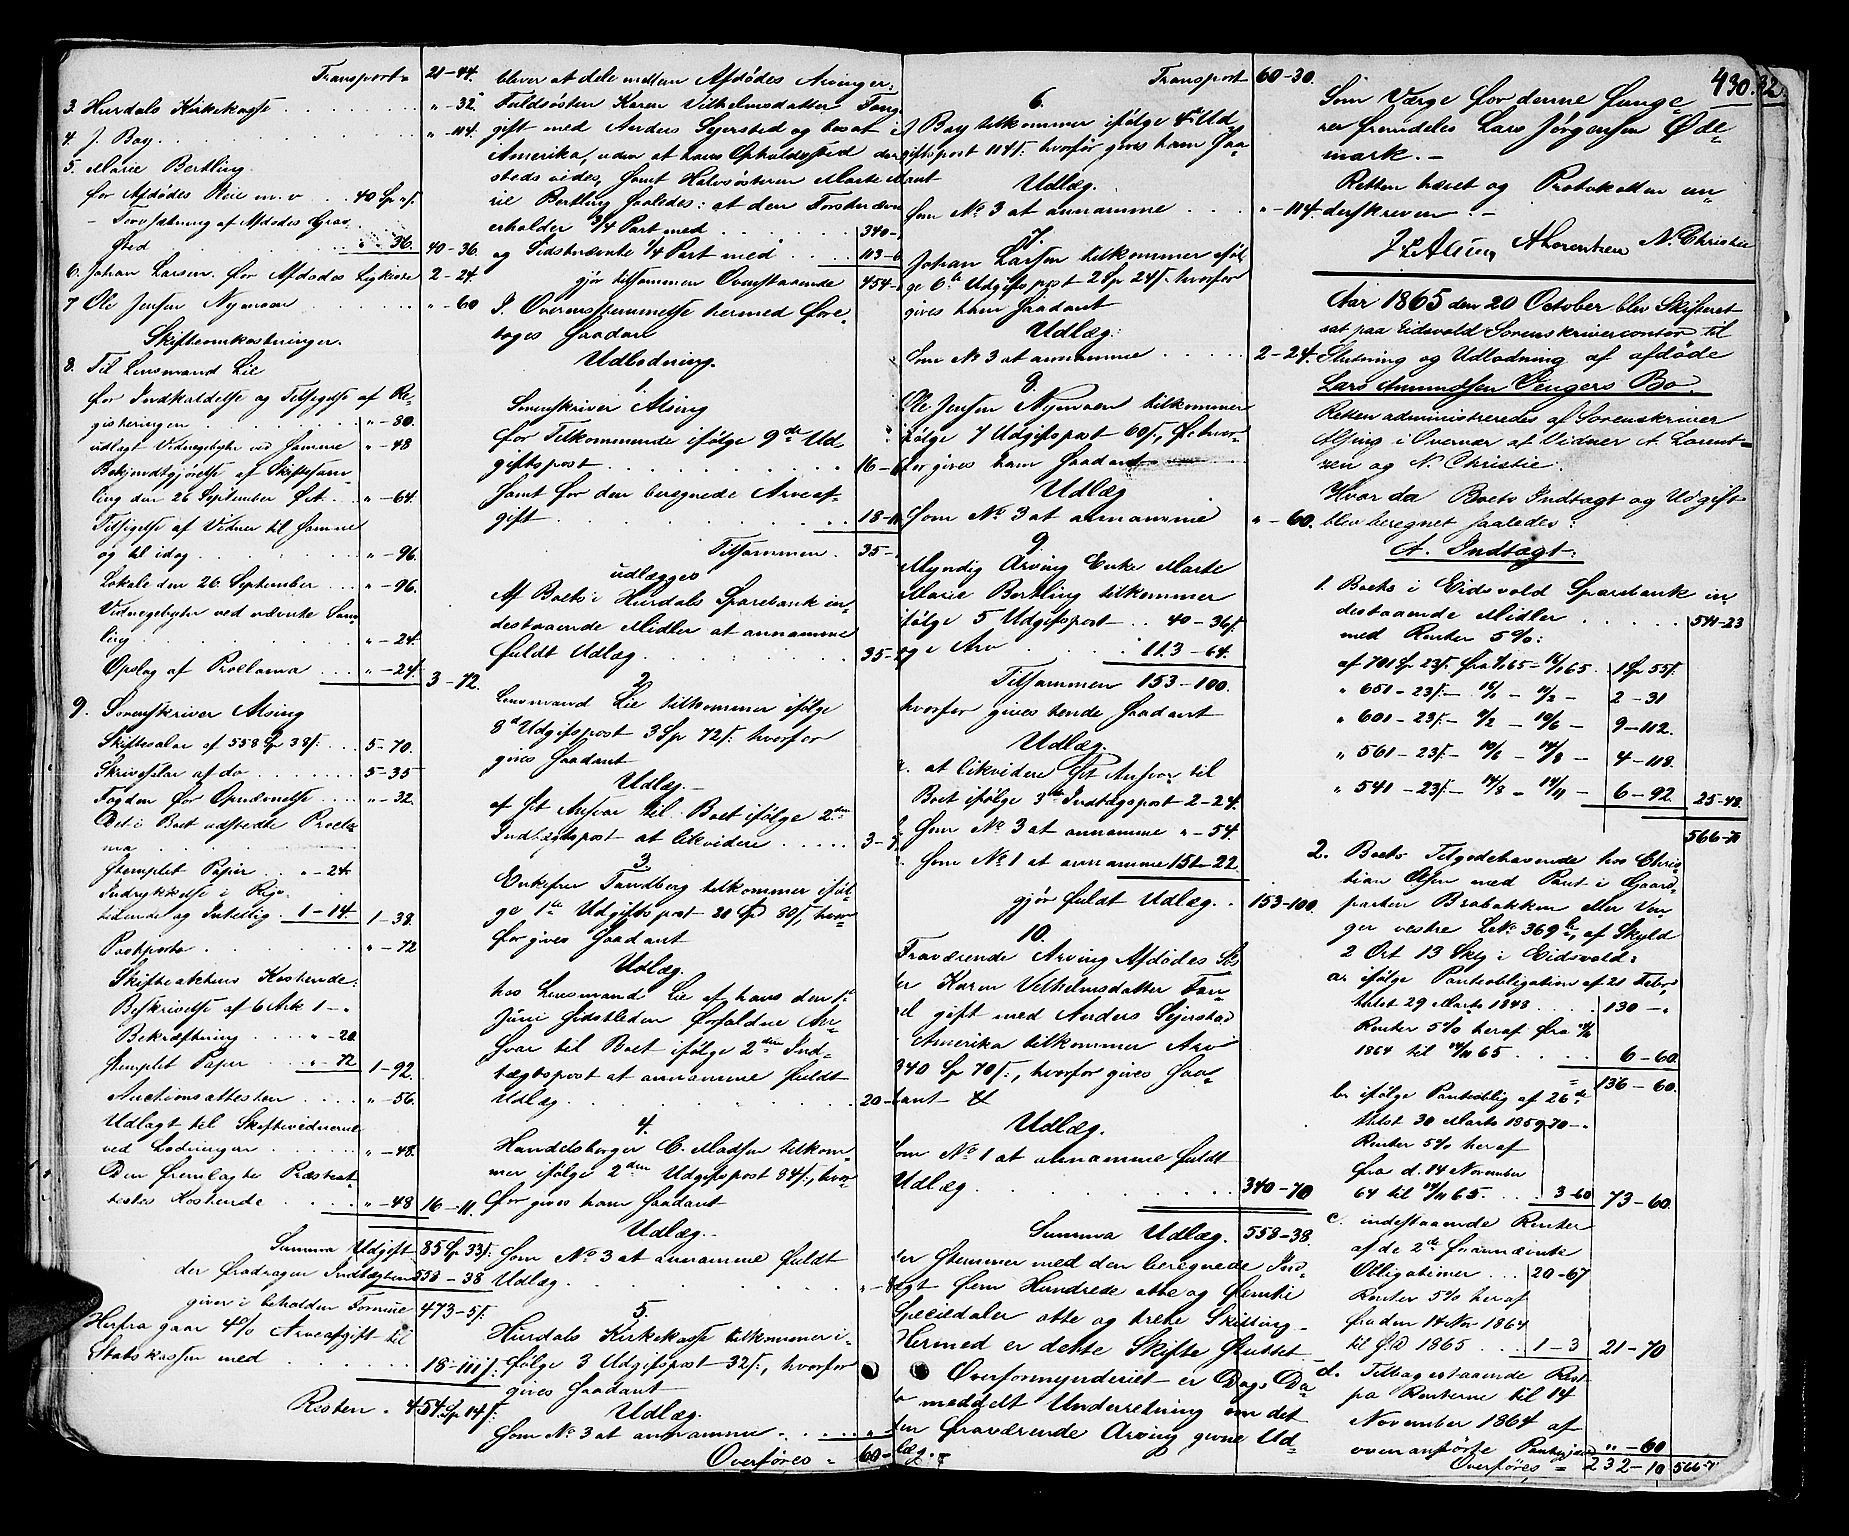 Transport 21-44.
3. Hurdals Kirkekasse " -32.
4. J. Bay " -114.
5. Marie Bertling
for Afdødes Pleie m. v. 40 Sp
Afdødes Grav-
sted " 36. 40-36.
6. Johan Larsen for Afdødes Ligkiste 2-24.
7 Ole Jensen Nymoen " -60
Skifteomkostninger.
8. Til Lensmand Lie
for Indkaldelse og Tilsigelse af Re-
gistreringen " -80.
udlagt Vidnegebyhr ved samme " -48
Bekjendtgjørelse af Skiftesam-
ling den 26 September " -64.
Tilsigelse af Vidner til samme
og til idag " -96.
Lokale den 26. September " -96.
Vidnegebyhr ved nævnte Sam-
ling " -24.
Opslag af Proclama " -24. 3-72.
9. Sorenskriver Alsing
Skiftesalær af 558 Sp 38 5-70.
Skrivesalær af do 5-35
Fogden for Opnævnelse " -32.
Det i Boet udstedte Procla-
ma
stemplet Papir " -24
Indrykkelse i Rigs-
tidende og Intellig 1-14 1-38.
Postporto " -72
Skifteaktens Kostende:
Beskrivelse af 6 Ark 1-"
Bekræftning " -20
stemplet Papir " -72 1-92.
Auctionsattesten " -56.
Udlagt til Skiftevidnerne
ved Lodningen " -48.
Den fremlagte Præsteat-
testes Kostende " -48 16-11.
Summa Udgift 85 Sp 33
der fradragen Indtægten 558-38
giver i beholden Formue 473-5
Herfra gaar 4% Arveafgift til
Statskassen med 18-111
Resten 454 Sp 14
bliver at dele mellem Afdødes Arvinger:
Fuldsøsteren Karen Vilhelmsdatter Fang
gift med Anders Sejersted og bosat i
Amerika, uden at hans Opholdssted der-
steds vides, samt Halvsøsteren Marte Ma-
rie Bertling saaledes: at den Førstnævnte
erholder 3/4 Part med 340-
og Sidstnævnte 1/4 Part med 113-6
gjør tilsammen Ovenstaaende 454-
I Overensstemmelse hermed fore-
toges saadan
Udlodning.
1.
Sorenskriver Alsing
for Tilkommende ifølge 9de Ud-
giftspost 16-
samt for den beregnede Arveaf-
gift 18-11
Tilsammen 35-
udlægges
Af Boets i Hurdals Sparebank in-
destaaende Midler at annamme
fuldt Udlæg 35-
2.
Lensmand Lie tilkommer ifølge
8de Udgiftspost 3 Sp 72 hvorfor
gives saadant
Udlæg.-
af sit Ansvar til Boet ifølge 2den
Indtægtspost at likvidere 3-7
3.
Enkefru Tandberg tilkommer iføl-
ge 1ste Udgiftspost 20 Spd 80, hvor-
for gives saadant
Udlæg.
hos Lensmand Lie af hans den 1ste
Juni sidstleden forfaldne An-
svar til Boet ifølge 2den Ind-
tægtspost at annamme fuldt
Udlæg 20-
4.
Handelsborger C. Madsen tilkom-
mer ifølge 2den Udgiftspost 84, hvor-
for gives ham saadant
Udlæg.-
Som No 3 at annamme fuldt
Udlæg " -8
5.
Hurdals Kirkekasse tilkommer i-
følge 3 Udgiftspost 32, hvorfor
gives saadant
Udlæg.
Som No 3 at annamme "
Overføres " 60-
Transport 60-30.
6.
J Bay tilkommer ifølge 4de Ud-
giftspost 114 hvorfor gives ham saa-
dant
Udlæg.
Som No 3 at annamme " -114
7.
Johan Larsen tilkommer iføl-
ge 6te Udgiftspost 2 Sp 24 hvorfor
gives ham saadant
Udlæg:
Som No 3 at annamme 2-24.
8.
Ole Jensen Nymoen tilkommer
ifølge 7 Udgiftspost 60, hvor-
for gives ham saadant
Udlæg
Som No 3 at annamme " -60.
9
Myndig Arving Enke Marte
Marie Bertling tilkommer
ifølge 5 Udgiftspost 40-36
og i Arv 113-64.
Tilsammen 153-100.
hvorfor gives hende saadant
Udlæg.
at likvidere sit Ansvar til
Boet ifølge 3die Indtægtspost 2-24.
Som No 3 at annamme " -54.
Som No 1 at annamme 151-22.
gjør fuldt Udlæg 153-100.
10.
Fraværende Arving Afdødes Søs-
ter Karen Vilhelmsdatter Fan-
gift med Anders Sejersted
i Amerika tilkommer Arv
340 Sp 70, hvorfor gives saa-
dant
Udlæg.
Som No 1 at annamme fuldt
Udlæg 340-70
Summa Udlæg. 558-38.
der stemmer med den beregnede Ind-
tægt fem Hundrede otte og femti
Speciedaler otte og trete Skilling.
Hermed er dette Skifte sluttet.
Overformynderiet er Dags Da-
to meddelt Underretning om det
den fraværende Arving givne Ud-
læg.-
430. 32.
Som Værge for denne funge-
rer fremdeles Lars Jørgensen Øde-
mark.-
Retten hævet og Protokollen un-
derskreven.-
J. Alsing A Lorentzen N. Christie
Aar 1865 den 20 October blev Skifteret
sat paa Eidsvold Sorenskrivercontor til
Slutning og Udlodning af afdøde
Lars Amundsen Vengers Bo.
Retten administreredes af Sorenskriver
Alsing i Overvær af Vidner A. Lorent-
zen og N. Christie.
Hvor da Boets Indtægt og Udgift
blev beregnet saaledes:
A. Indtægt:
1. Boets i Eidsvold Sparebank in-
destaaende Midler 541-23
med Renter 5%:
af 701 Sp 23 1 Sp 55
" 651-23 2-31
" 601-23 9-112.
" 561-23 4-118.
" 541-23 6-92. 25-48.
566-71
2. Boets Tilgodehavende hos Chris-
tian Olsen med Pant i Gaard-
parten Brobakken eller Ven-
ger vestre LNo 369b, af Skyld
2 Ort 13 Sk i Eidsvold:
a. ifølge Panteobligation af 21 Febr,
tinlst 29 Marts 1848 130-"
Renter 5% heraf fra 14/11
1864 til 14/11 65 6-60.
136-60.
b. ifølge Panteoblig af 26de
tinlst 30 Marts 1859 70-"
Renter 5% heraf
fra d. 14 November
64 til 14/11 65 3-60 73-60.
c. indestaaende Renter
af de 2de forannævnte
Obligationer 20-67
Renter 5% heraf
fra den 14 Nov 1864
til s. D 1865 1-3 21-70
d. Tilbagestaaende Rest
paa Renterne til 14
November 1864 af
ovenanførte " -60
Overføres 232-10 566-71